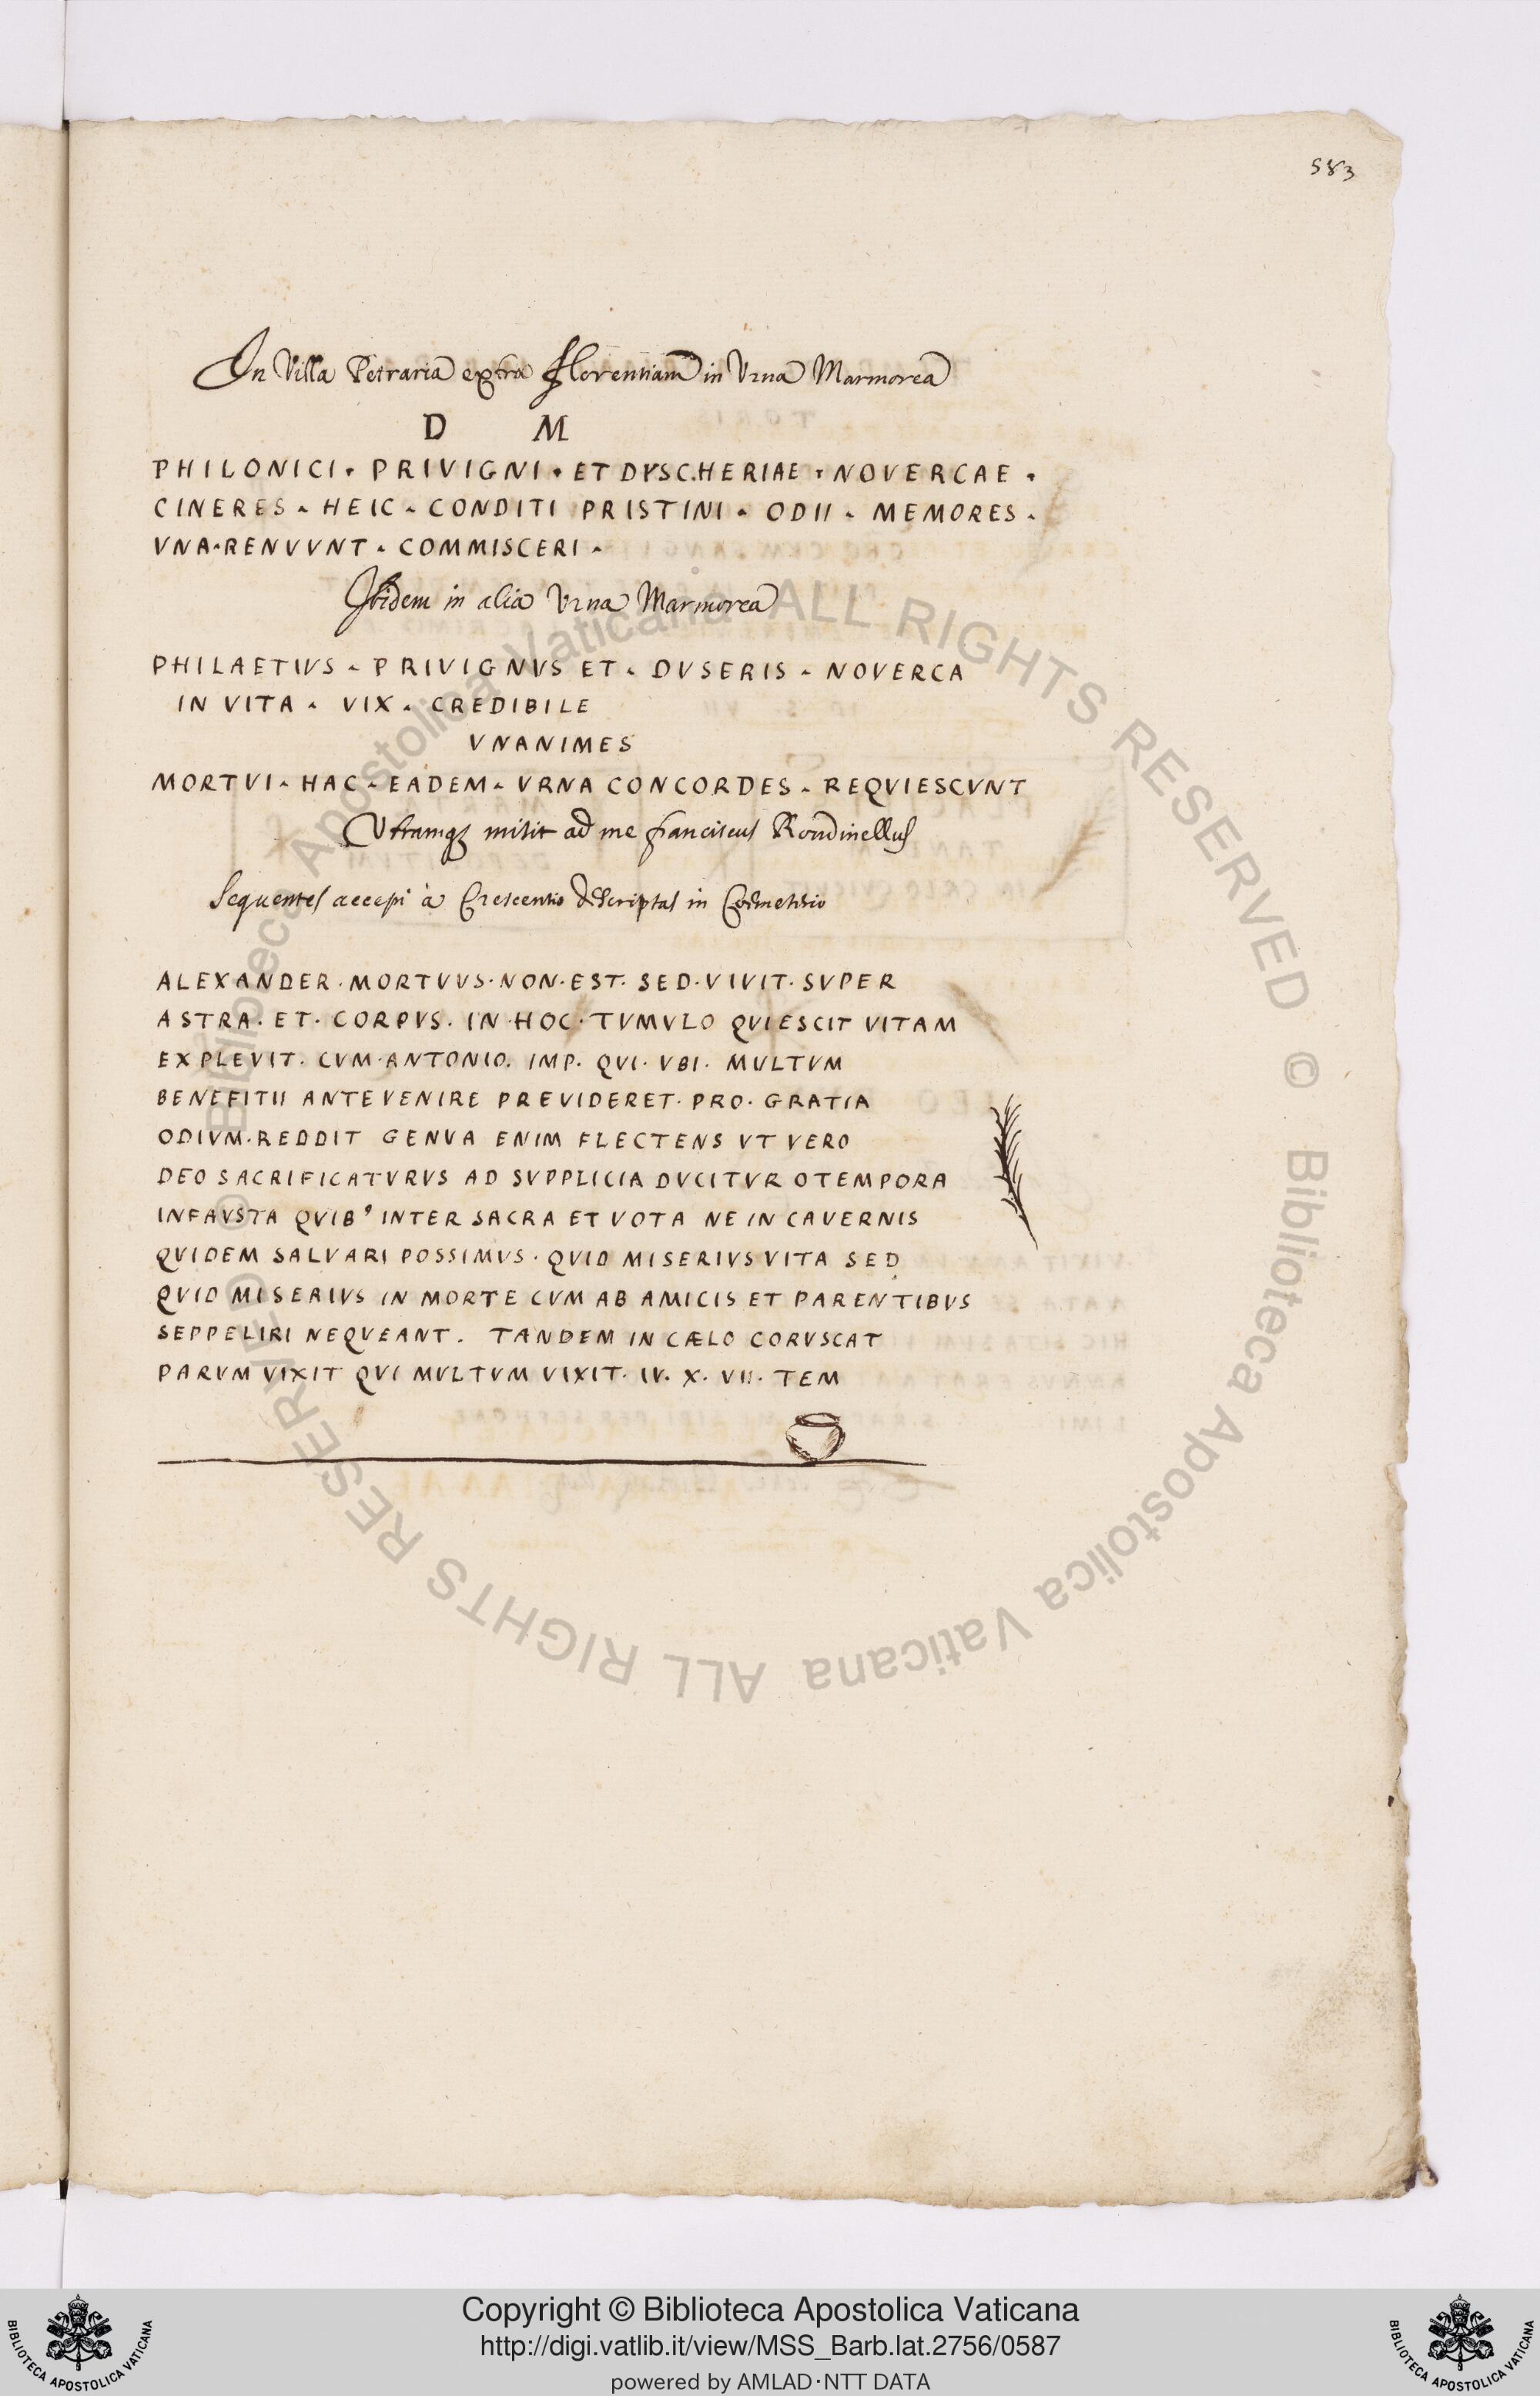 583
In Villa Petraria extra Florentiam in Urna Marmorea
D M
PHILONICI · PRIVIGNI · ET DVSCHERIAE · NOVERCAE ·
CINERES · HEIC · CONDITI PRISTINI · ODII · MEMORES ·
VNA · RENVVNT · COMMISCERI ·
Ibidem in alia Urna Marmorea
PHILAETIVS · PRIVIGNVS ET · DVSERIS · NOVERCA
IN VITA · VIX · CREDIBILE
VNANIMES
MORTVI · HAC · EADEM · VRNA CONCORDES · REQVIESCVNT
Utramq; misit ad me franciscus Rondinellus
Sequentes accepi à Crescentio descriptas in Coemeterio
ALEXANDER · MORTVVS · NON · EST · SED · VIVIT · SVPER
ASTRA · ET · CORPVS · IN · HOC · TVMVLO QVIESCIT VITAM
EXPLEVIT · CVM · ANTONIO · IMP · QVI · VBI · MVLTVM
BENEFITII ANTEVENIRE PREVIDERET · PRO · GRATIA
ODIVM · REDDIT GENVA ENIM FLECTENS VT VERO
DEO SACRIFICATVRVS AD SVPPLICIA DVCITVR OTEMPORA
INFAVSTA QVIB' INTER SACRA ET VOTA NE IN CAVERNIS
QVIDEM SALVARI POSSIMVS · QVID MISERIVS VITA SED
QVID MISERIVS IN MORTE CVM AB AMICIS ET PARENTIBVS
SEPPELIRI NEQVEANT . TANDEM IN CÆLO CORVSCAT
PARVM VIXIT QVI MVLTVM VIXIT · IV · X · VII · TEM
© Biblioteca Apostolica Vaticana ALL RIGHTS RESERVED © Biblioteca Apostolica Vaticana ALL RIGHTS RESERVED
Copyright © Biblioteca Apostolica Vaticana
http://digi.vatlib.it/view/MSS_Barb.lat.2756/0587
powered by AMLAD·NTT DATA
BIBLIOTECA APOSTOLICA VATICANA
BIBLIOTECA APOSTOLICA VATICANA